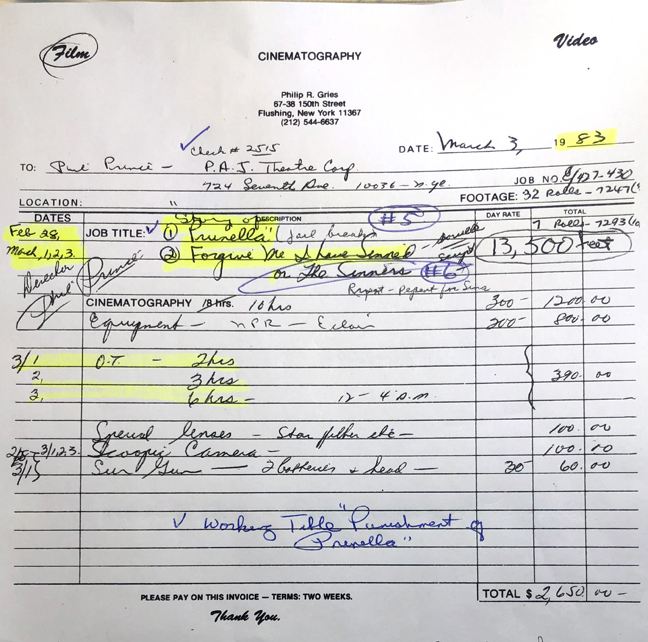 Film
Video
CINEMATOGRAPHY
Philip R. Gries
67-38 150th Street
Flushing, New York 11367
(212) 544-6637
✓ Check # 2515
DATE: March 3, 1983
TO: Phil Prince – P.A.J. Theatre Corp
JOB NO. 427-430
724 Seventh Ave. 10036 – N.Y.C.
LOCATION: "
FOOTAGE: 32 Rolls – 7247
DATES DESCRIPTION DAY RATE TOTAL
Story of #5
7 Rolls – 7293
Feb 28, JOB TITLE: ✓ ① Prunella" (jail break)
March, 1, 2, 3. ② Forgive Me I have Sinned – 13,500 feet
Director or The Sinners #6
Phil Prince
Repent – Repent for Sins
CINEMATOGRAPHY /8 hrs. 10 hrs 300- 1200.00
Equipment – NPR – Eclair 200- 800.00
3/1 O.T. – 2 hrs
2, 3 hrs 390.00
3, 6 hrs – 12 - 4 a.m.
Special lenses – Star filter etc – 100.00
3/1,2,3. Scoopic Camera – 100.00
3/1 Sun Gun — 2 batteries & head — 60.00
✓ Working Title "Punishment of
Prunella"
PLEASE PAY ON THIS INVOICE — TERMS: TWO WEEKS.
TOTAL $ 2,650.00 –
Thank You.